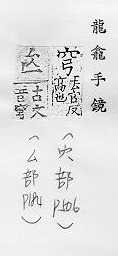 龍龕手鏡
穹 去宮反
高也
(穴部 P506)
古文
音穹
(厶部 P184)